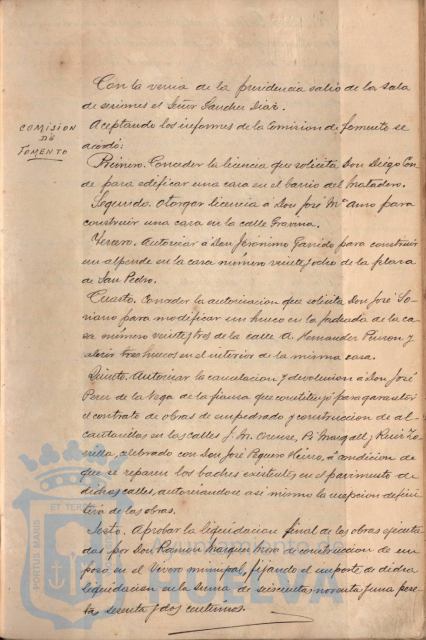 Con la venia de la presidencia salió de la sala
de sesiones el Señor Sanchez Diaz.
COMISION
DE
FOMENTO
Aceptando los informes de la Comision de fomento se
acordó:
Primero. Conceder la licencia que solicita Don Diego Con
de para edificar una casa en el barrio del Matadero.
Segundo. Otorgar licencia á Don José Mª para
construir una casa en la calle Gravina.
Tercero. Autorizar á Don Jerónimo Garrido para construir
un alpende en la casa número veintiocho de la plaza
de San Pedro.
Cuarto. Conceder la autorizacion que solicita Don José So
riano para modificar un hueco en la fachada de la ca
sa número veintitres de la calle A. Hernandez Pinzon y
abrir tres huecos en el interior de la misma casa.
Quinto. Autorizar la cancelacion y devolucion á Don José
Perez de la Vega de la fianza que constituyó para garantir
el contrato de obras de empedrado y construccion de al
cantarillas en las calles J. M. Orense, Pi Margall y Ruiz Zo
rrilla, celebrado con Don José Peguero á condicion de
que se reparen los baches existentes en el pavimento de
dichas calles, autorizandose asi mismo la recepcion defini
tiva de las obras.
Sexto. Aprobar la liquidacion final de las obras ejecuta
das por Don Ramón Marquez de construccion de un
pozo en el Vivero municipal, fijando el importe de dicha
liquidacion en la suma de seiscientas noventa y una pese
ta sesenta y dos centimos.
PORTUS MARIS
ET TERR
HUELVA